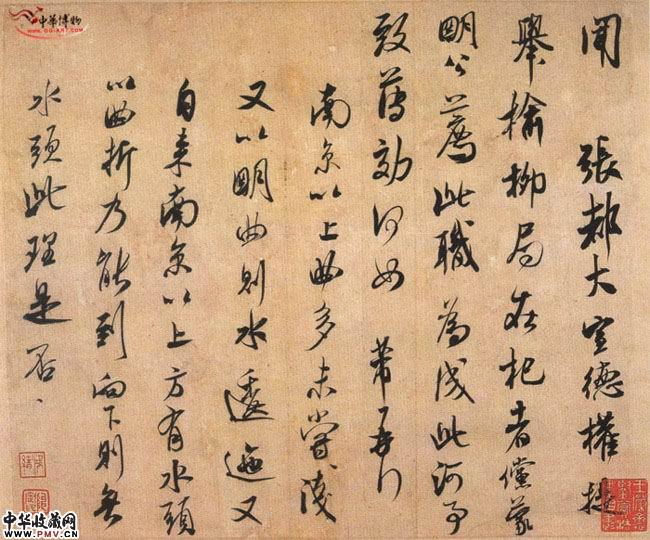 聞 張都大宣德權提
舉榆柳局在杞者儻蒙
明公薦此職為成此河事
致薄効何如 芾再行
南京以上曲多未嘗淺
又以明曲則水逶迤又
自来南京以上方有水頭
以曲折乃能到向下則無
水頭此理是否
中华博物
www.GG-ART.com
中华收藏网
www.PMV.CN